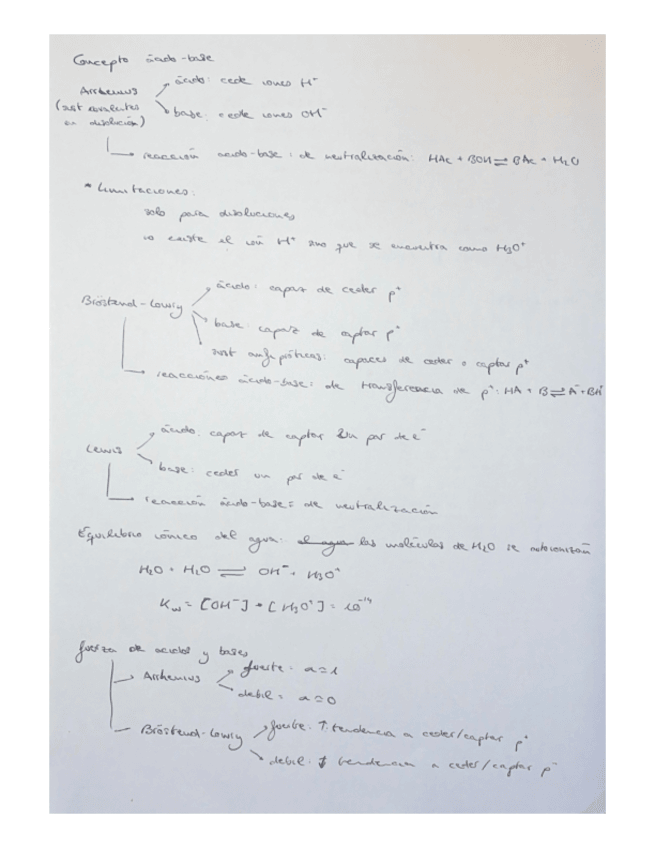 Concepto ácido-base
Arrhenius
(sust covalentes
en disolución)
ácido: cede iones H⁺
base: cede iones OH⁻
reacción ácido-base: de neutralización: HAc + BOH ⇌ BAc + H₂O
* limitaciones:
solo para disoluciones
no existe el ión H⁺ sino que se encuentra como H₃O⁺
Bröstend-Lowry
ácido: capaz de ceder p⁺
base: capaz de captar p⁺
sust anfipróticas: capaces de ceder o captar p⁺
reacciónes ácido-base: de transferencia de p⁺: HA + B ⇌ A⁻ + BH⁺
Lewis
ácido: capaz de captar un par de e⁻
base: ceder un par de e⁻
reacción ácido-base = de neutralización
Equilibrio iónico del agua: el agua las moléculas de H₂O se autoionizan
H₂O + H₂O ⇌ OH⁻ + H₃O⁺
Kw = [OH⁻] * [H₃O⁺] = 10⁻¹⁴
fuerza de acidos y bases
Arrhenius
fuerte: a=1
debil = a≈0
Bröstend-Lowry
fuerte: ↑ tendencia a ceder/captar p⁺
debil: ↓ tendencia a ceder/captar p⁺